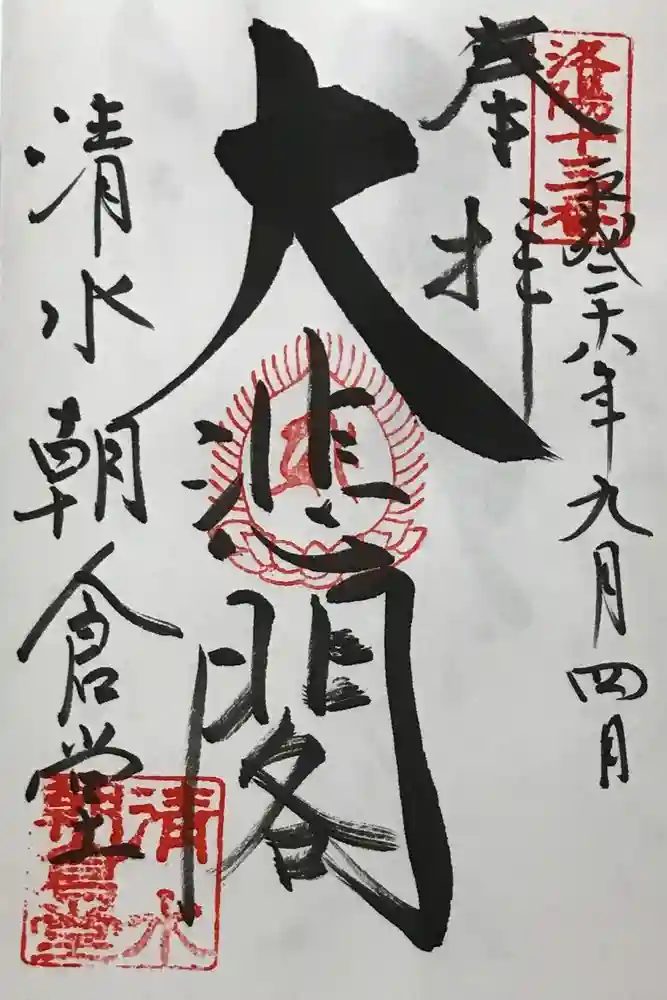 洛陽十三番
平成二十八年九月四日
奉拝
大悲閣
清水朝倉堂
清水
朝倉堂